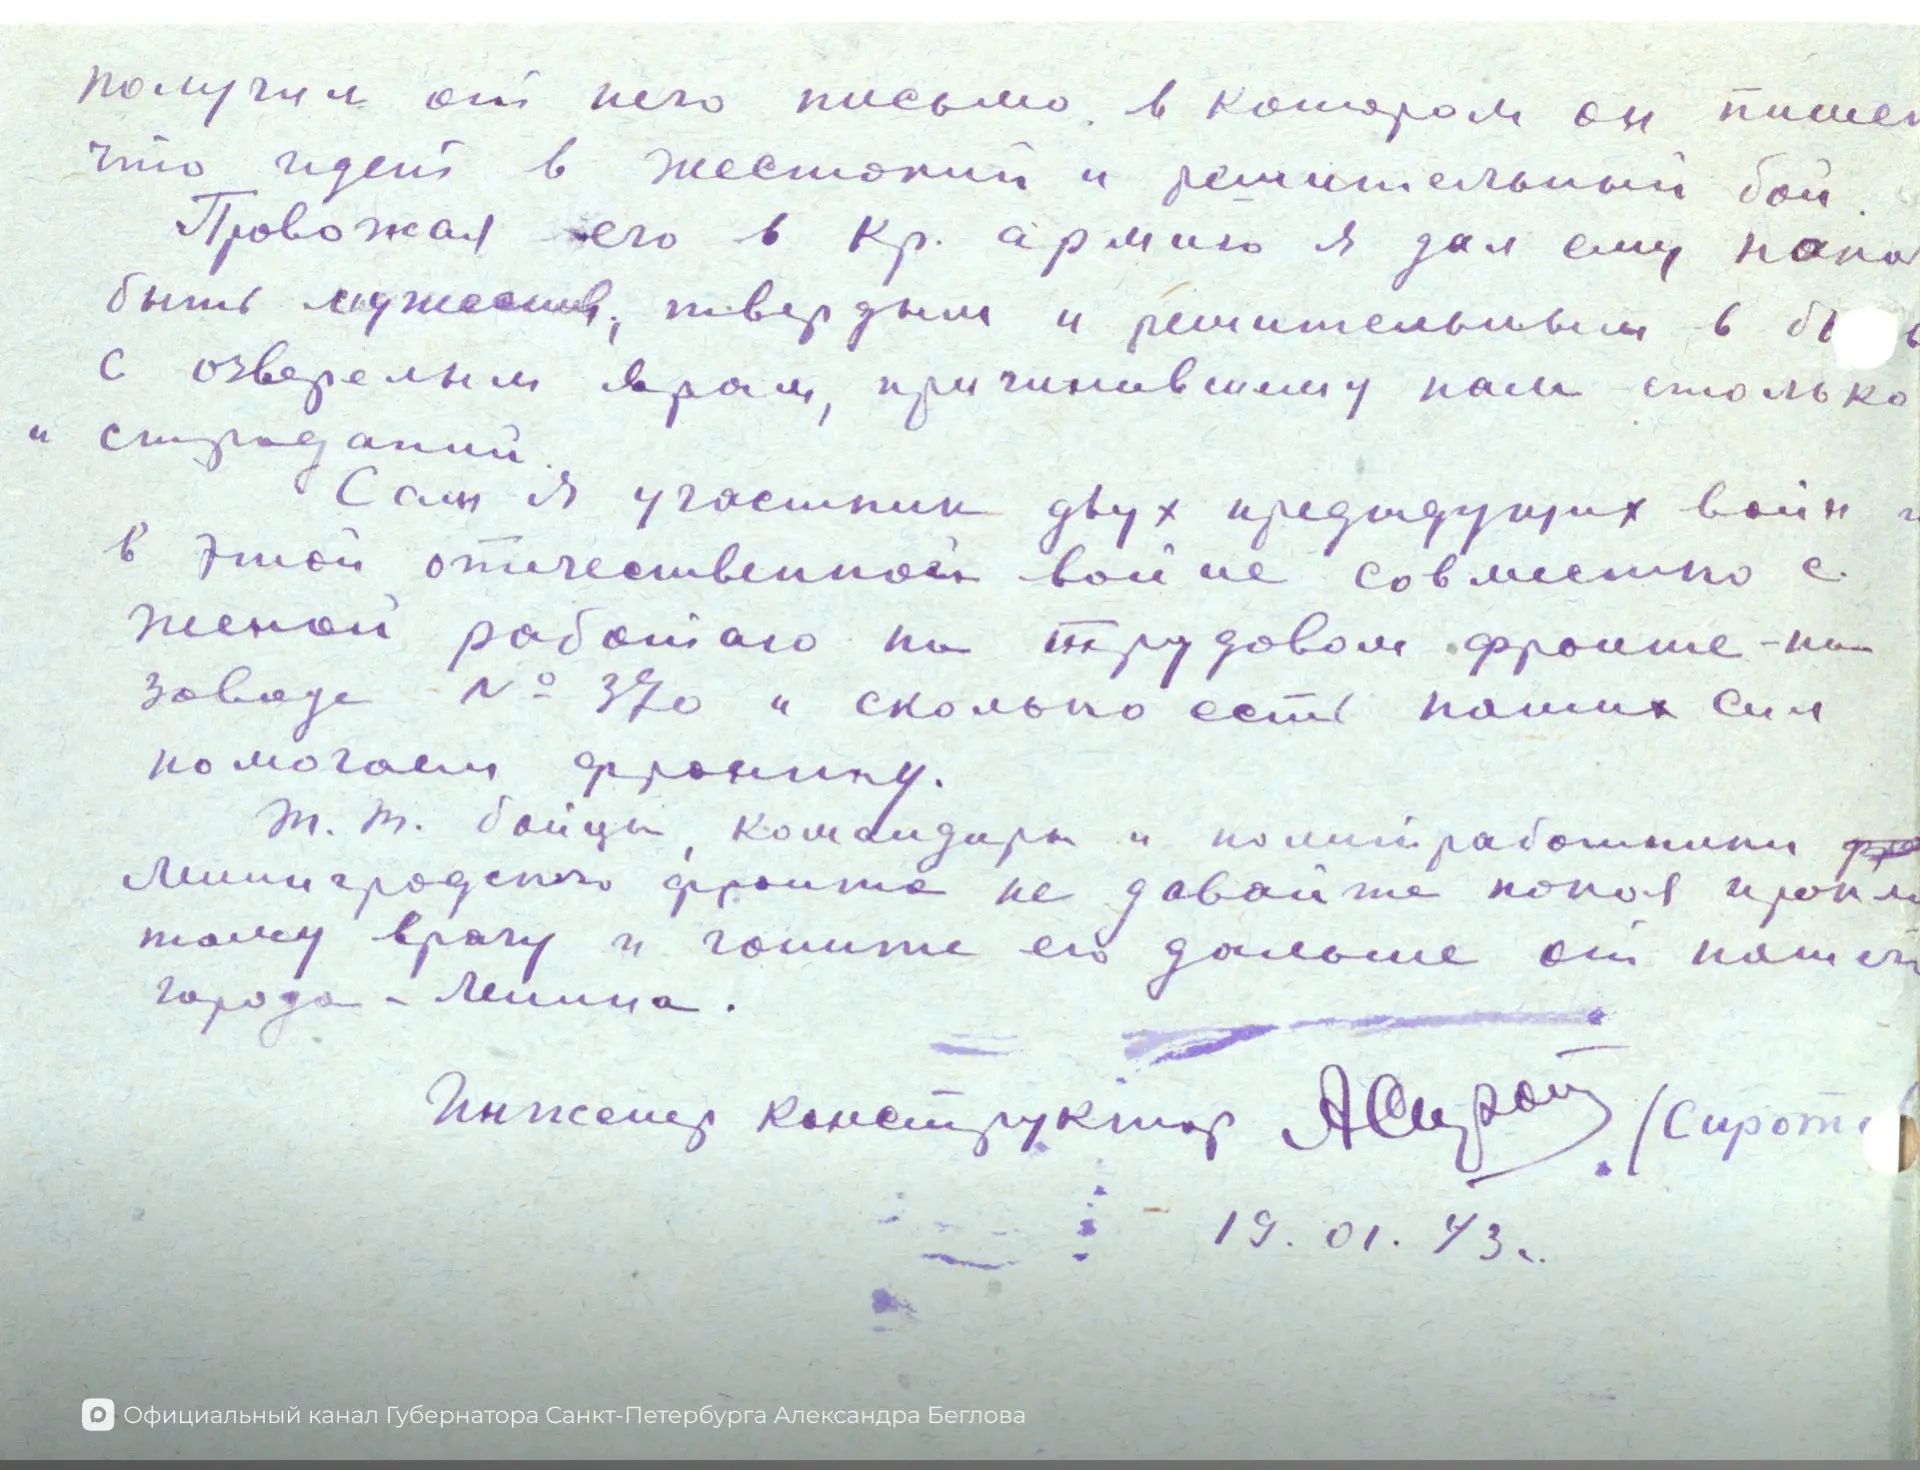 получил от него письмо, в котором он пишет
что идет в жестокий и решительный бой.
Провожая его в Кр. армию я дал ему нака
быть мужеств, твердым и решительным в б
с озверелым врагом, причинившему нам столько
и страданий.
Сам я участник двух предыдущих войн и
в этой отечественной войне совместно с
женой работаю на трудовом фронте - на
заводе № 370 и сколько есть наших сил
помогаем фронту.
т.т. бойцы, командиры и политработники
Ленинградского фронта не давайте покоя прокля
тому врагу и гоните его дальше от нашего
города - Ленина.
Инженер конструктор АСирот (Сироте
19.01.43г.
Официальный канал Губернатора Санкт-Петербурга Александра Беглова